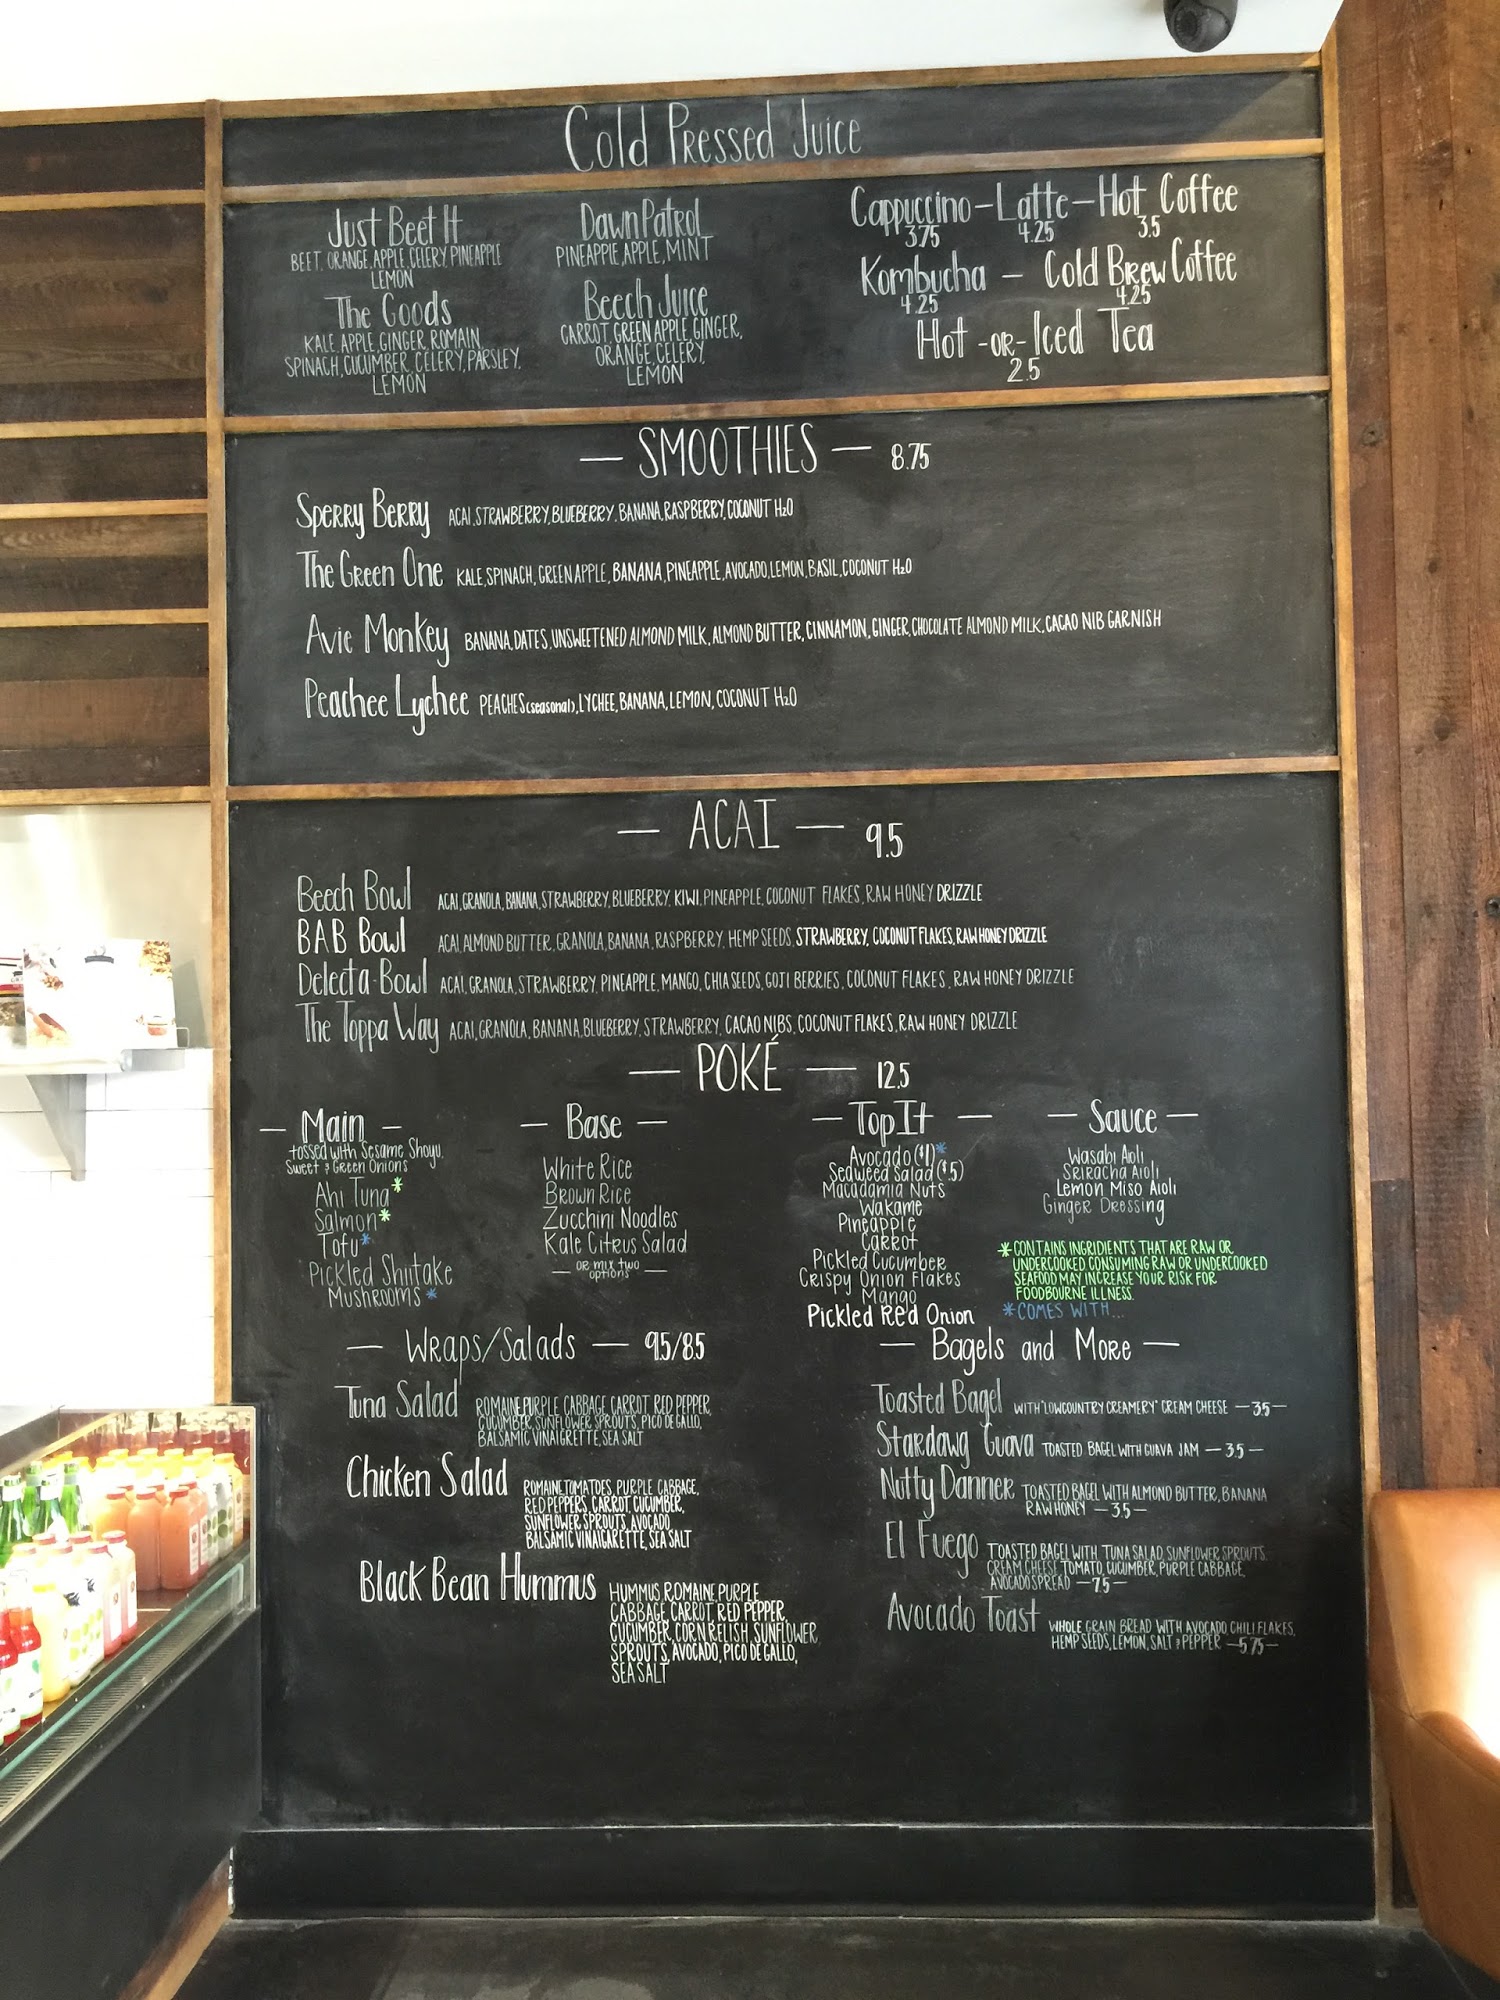 Cold Pressed Juice
Just Beet It
BEET, ORANGE, APPLE, CELERY, PINEAPPLE
LEMON
The Goods
KALE, APPLE, GINGER, ROMAIN,
SPINACH, CUCUMBER, CELERY, PARSLEY,
LEMON
Dawn Patrol
PINEAPPLE, APPLE, MINT
Beech Juice
CARROT, GREEN APPLE, GINGER,
ORANGE, CELERY,
LEMON
Cappuccino - Latte - Hot Coffee
3.75 4.25 3.5
Kombucha - Cold Brew Coffee
4.25 4.25
Hot -OR- Iced Tea
2.5
— SMOOTHIES — 8.75
Sperry Berry ACAI, STRAWBERRY, BLUEBERRY, BANANA, RASPBERRY, COCONUT H2O
The Green One KALE, SPINACH, GREEN APPLE, BANANA, PINEAPPLE, AVOCADO, LEMON, BASIL, COCONUT H2O
Avie Monkey BANANA, DATES, UNSWEETENED ALMOND MILK, ALMOND BUTTER, CINNAMON, GINGER, CHOCOLATE ALMOND MILK, CACAO NIB GARNISH
Peachee Lychee PEACHES (seasonal), LYCHEE, BANANA, LEMON, COCONUT H2O
— ACAI — 9.5
Beech Bowl ACAI, GRANOLA, BANANA, STRAWBERRY, BLUEBERRY, KIWI, PINEAPPLE, COCONUT FLAKES, RAW HONEY DRIZZLE
BAB Bowl ACAI, ALMOND BUTTER, GRANOLA, BANANA, RASPBERRY, HEMP SEEDS, STRAWBERRY, COCONUT FLAKES, RAW HONEY DRIZZLE
Delecta-Bowl ACAI, GRANOLA, STRAWBERRY, PINEAPPLE, MANGO, CHIA SEEDS, GOJI BERRIES, COCONUT FLAKES, RAW HONEY DRIZZLE
The Toppa Way ACAI, GRANOLA, BANANA, BLUEBERRY, STRAWBERRY, CACAO NIBS, COCONUT FLAKES, RAW HONEY DRIZZLE
— POKÉ — 12.5
— Main —
tossed with Sesame Shoyu,
Sweet & Green Onions
Ahi Tuna*
Salmon*
Tofu*
Pickled Shiitake
Mushrooms *
— Base —
White Rice
Brown Rice
Zucchini Noodles
Kale Citrus Salad
— or mix two
options —
— Top It —
Avocado ($1)*
Sedweed Salad ($.5)
Macadamia Nuts
Wakame
Pineapple
Carrot
Pickled Cucumber
Crispy Onion Flakes
Mango
Pickled Red Onion
— Sauce —
Wasabi Aioli
Sriracha Aioli
Lemon Miso Aioli
Ginger Dressing
* CONTAINS INGRIDIENTS THAT ARE RAW OR
UNDERCOOKED CONSUMING RAW OR UNDERCOOKED
SEAFOOD MAY INCREASE YOUR RISK FOR
FOODBOURNE ILLNESS.
* COMES WITH...
— Wraps/Salads — 9.5/8.5
Tuna Salad ROMAINE, PURPLE CABBAGE, CARROT, RED PEPPER,
CUCUMBER, SUNFLOWER SPROUTS, PICO DE GALLO,
BALSAMIC VINAIGRETTE, SEA SALT
Chicken Salad ROMAINE, TOMATOES, PURPLE CABBAGE,
RED PEPPERS, CARROT, CUCUMBER,
SUNFLOWER SPROUTS, AVOCADO,
BALSAMIC VINAIGARETTE, SEA SALT
Black Bean Hummus HUMMUS, ROMAINE, PURPLE
CABBAGE, CARROT, RED PEPPER,
CUCUMBER, CORN RELISH, SUNFLOWER
SPROUTS, AVOCADO, PICO DE GALLO,
SEA SALT
— Bagels and More —
Toasted Bagel WITH "LOWCOUNTRY CREAMERY" CREAM CHEESE — 3.5 —
Stardawg Guava TOASTED BAGEL WITH GUAVA JAM — 3.5 —
Nutty Danner TOASTED BAGEL WITH ALMOND BUTTER, BANANA
RAW HONEY — 3.5 —
El Fuego TOASTED BAGEL WITH TUNA SALAD, SUNFLOWER SPROUTS,
CREAM CHEESE, TOMATO, CUCUMBER, PURPLE CABBAGE,
AVOCADO SPREAD — 7.5 —
Avocado Toast WHOLE GRAIN BREAD WITH AVOCADO, CHILI FLAKES,
HEMP SEEDS, LEMON, SALT & PEPPER — 5.75 —